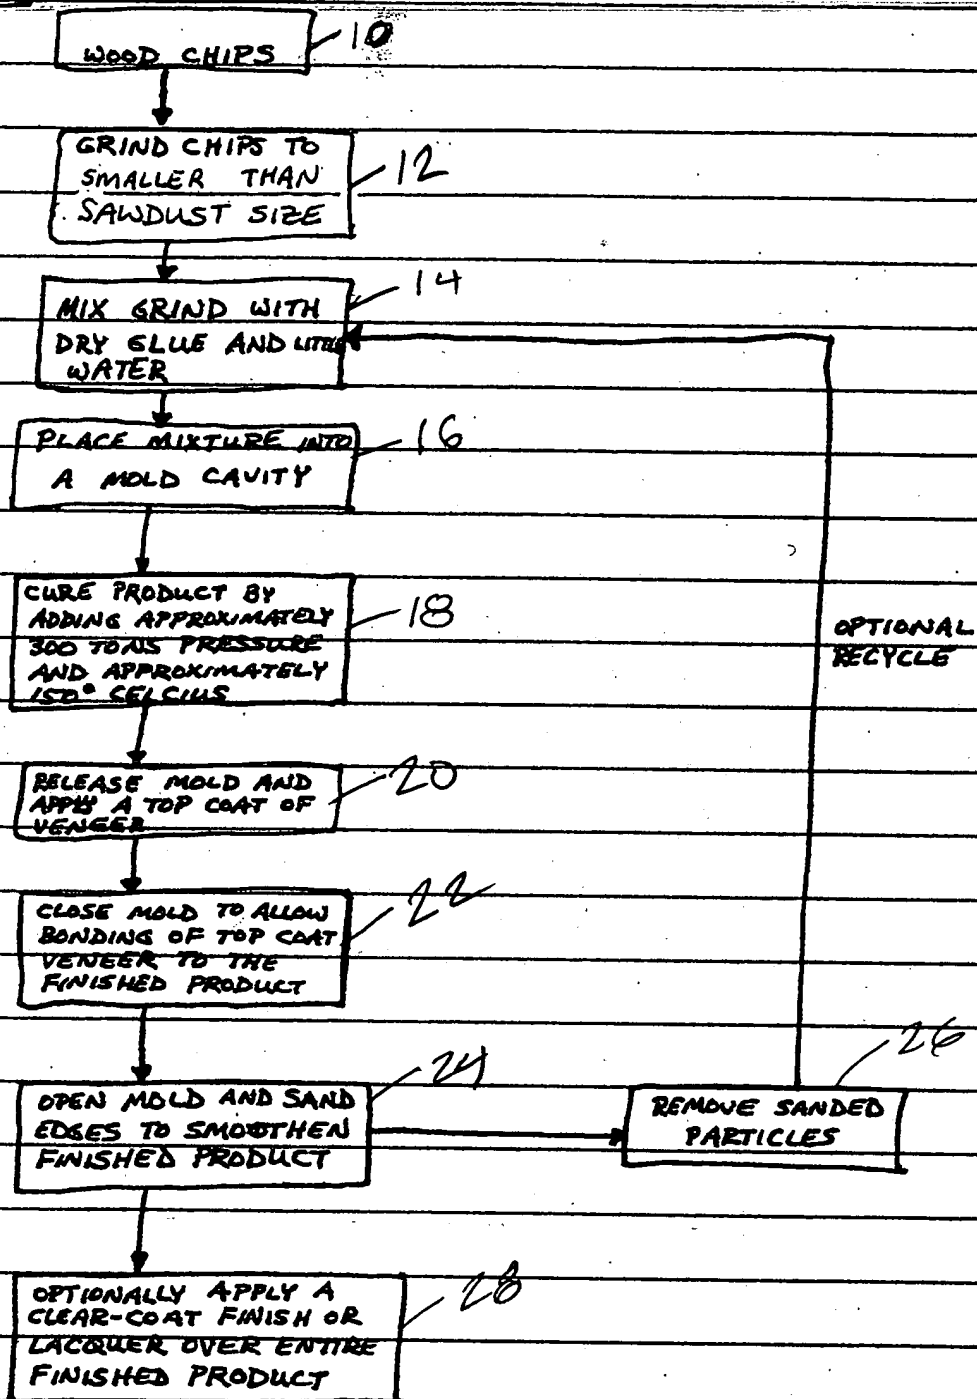 WOOD CHIPS
10
GRIND CHIPS TO
SMALLER THAN
SAWDUST SIZE
12
MIX GRIND WITH
DRY GLUE AND LITTLE
WATER
14
PLACE MIXTURE INTO
A MOLD CAVITY
16
CURE PRODUCT BY
ADDING APPROXIMATELY
300 TONS PRESSURE
AND APPROXIMATELY
150° CELCIUS
18
OPTIONAL
RECYCLE
RELEASE MOLD AND
APPLY A TOP COAT OF
VENEER
20
CLOSE MOLD TO ALLOW
BONDING OF TOP COAT
VENEER TO THE
FINISHED PRODUCT
22
OPEN MOLD AND SAND
EDGES TO SMOOTHEN
FINISHED PRODUCT
24
REMOVE SANDED
PARTICLES
26
OPTIONALLY APPLY A
CLEAR-COAT FINISH OR
LACQUER OVER ENTIRE
FINISHED PRODUCT
28